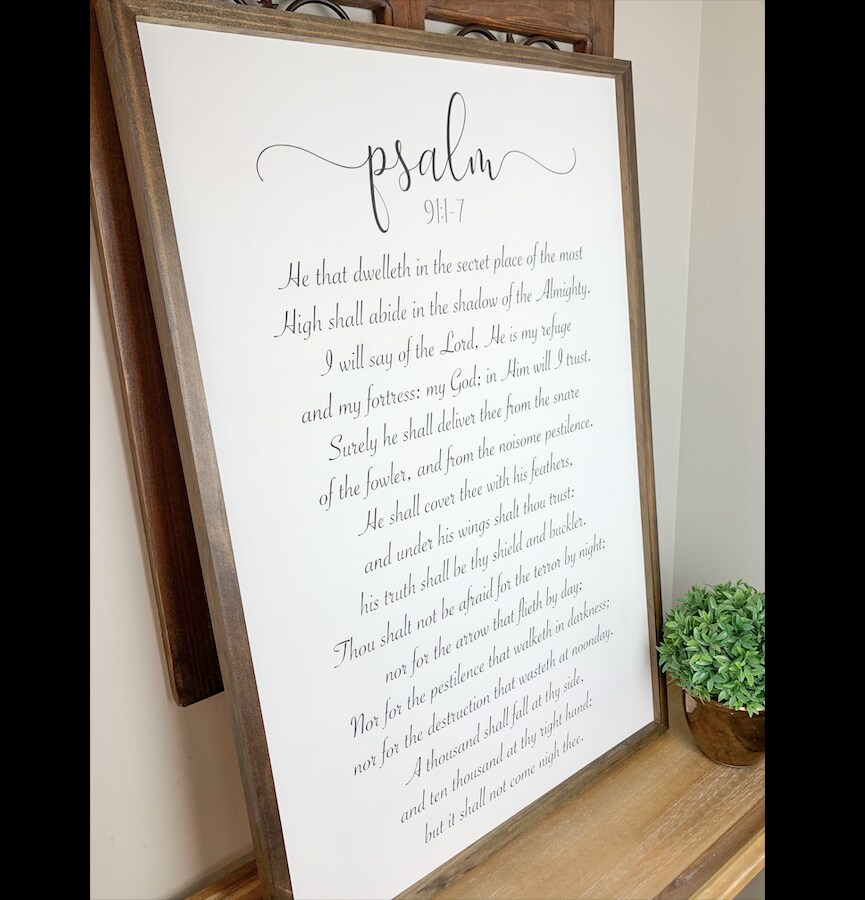 psalm
91:1-7
He that dwelleth in the secret place of the most
High shall abide in the shadow of the Almighty.
I will say of the Lord, He is my refuge
and my fortress: my God; in Him will I trust.
Surely he shall deliver thee from the snare
of the fowler, and from the noisome pestilence.
He shall cover thee with his feathers,
and under his wings shalt thou trust:
his truth shall be thy shield and buckler.
Thou shalt not be afraid for the terror by night;
nor for the arrow that flieth by day;
Nor for the pestilence that walketh in darkness;
nor for the destruction that wasteth at noonday.
A thousand shall fall at thy side,
and ten thousand at thy right hand;
but it shall not come nigh thee.